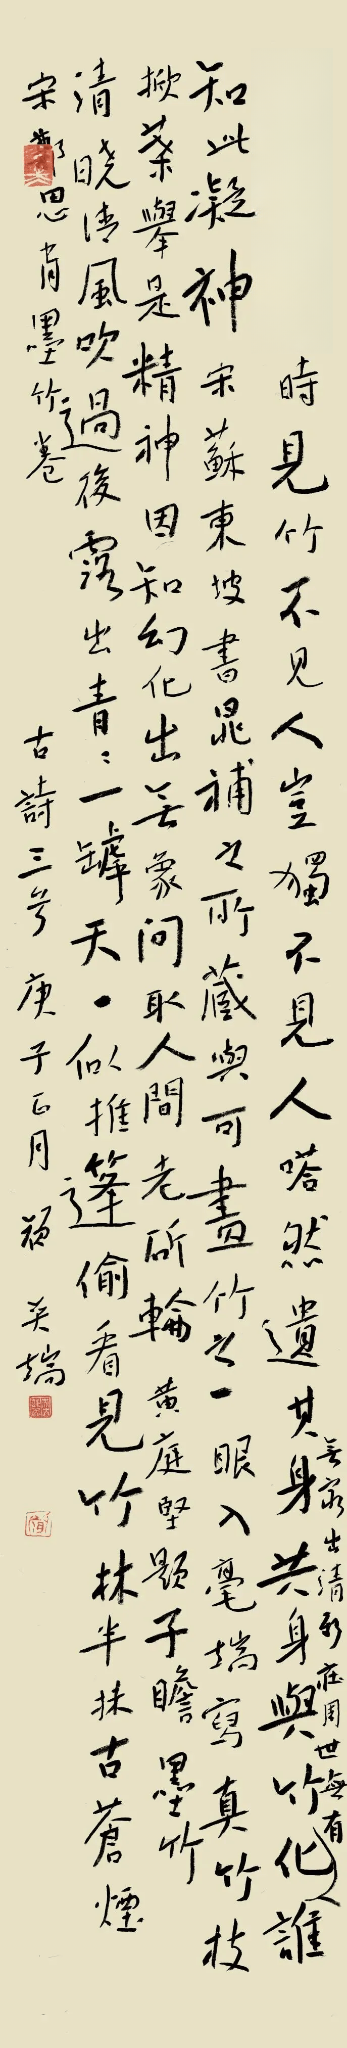 時見竹不見人豈獨不見人嗒然遺其身其身與竹化誰
無窮出清新莊周世無有
知此凝神 宋蘇東坡書晁補之所藏與可畫竹之一 眼入毫端寫真竹枝
掀葉舉是精神因知幻化出無象問取人間老斫輪 黃庭堅題子瞻墨竹
清曉清風吹過後露出青〻一罅天 似推篷偷看見竹林半抹古蒼煙
宋鄭思肖墨竹卷
古詩三首 庚子正月